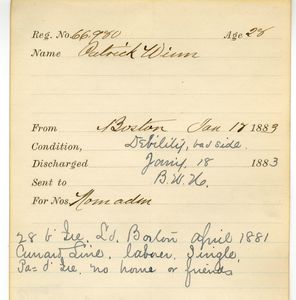 Reg. No. 66,980 Age 28
Name Patrick Winn
From Boston Jan 17 1883
Condition, Debility, bad side.
Discharged Jany. 18 1883
Sent to B.W.H.
For Nos. Nomadm
28 b Ire. L'd. Boston April 1881
Cunard Line, laborer, Single,
Pas d' Ire. no home or friends